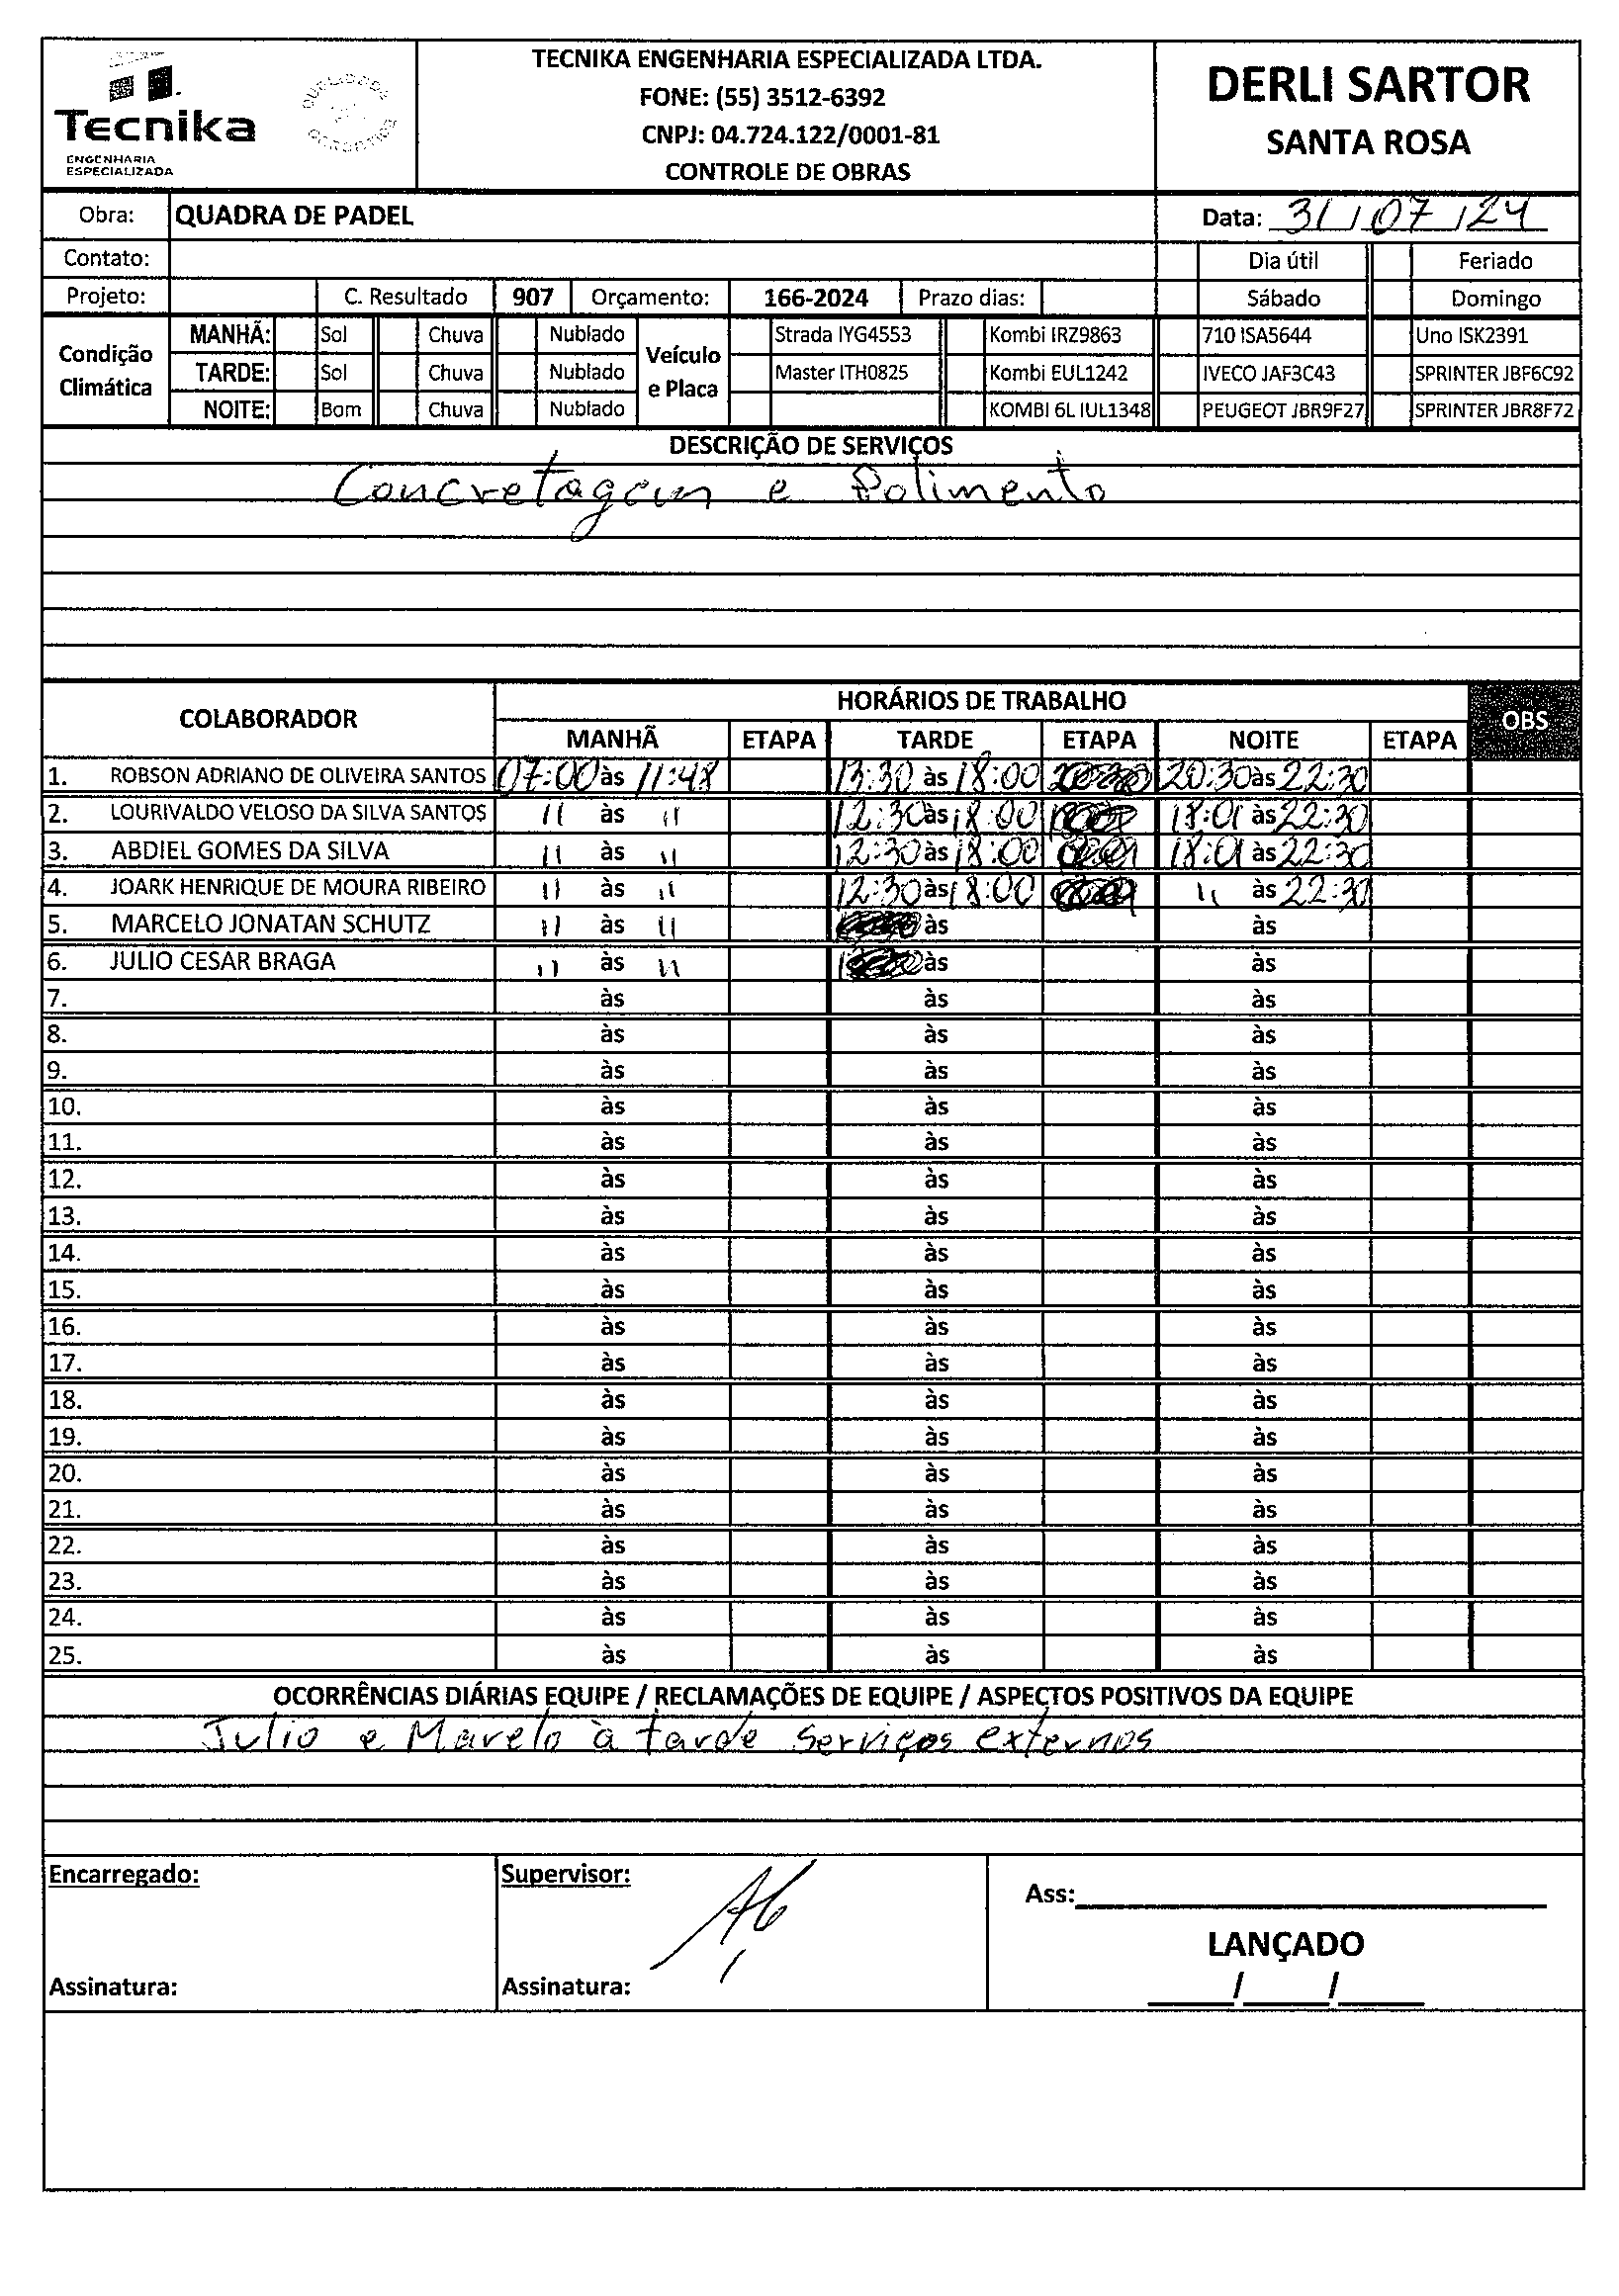 Tecnika
ENGENHARIA
ESPECIALIZADA
TECNIKA ENGENHARIA ESPECIALIZADA LTDA.
FONE: (55) 3512-6392
CNPJ: 04.724.122/0001-81
CONTROLE DE OBRAS
DERLI SARTOR
SANTA ROSA
Obra: QUADRA DE PADEL Data: 31/07/24
Contato: Dia útil Feriado
Projeto: C. Resultado 907 Orçamento: 166-2024 Prazo dias: Sábado Domingo
Condição Climática Veículo e Placa
MANHÃ: Sol Chuva Nublado Strada IYG4553 Kombi IRZ9863 710 ISA5644 Uno ISK2391
TARDE: Sol Chuva Nublado Master ITH0825 Kombi EUL1242 IVECO JAF3C43 SPRINTER JBF6C92
NOITE: Bom Chuva Nublado KOMBI 6L IUL1348 PEUGEOT JBR9F27 SPRINTER JBR8F72
DESCRIÇÃO DE SERVIÇOS
Concretagem e Polimento
COLABORADOR HORÁRIOS DE TRABALHO OBS
MANHÃ ETAPA TARDE ETAPA NOITE ETAPA
1. ROBSON ADRIANO DE OLIVEIRA SANTOS 07:00 às 11:48 13:30 às 18:00 20:30 às 22:30
2. LOURIVALDO VELOSO DA SILVA SANTOS " às " 12:30 às 18:00 18:01 às 22:30
3. ABDIEL GOMES DA SILVA " às " 12:30 às 18:00 18:01 às 22:30
4. JOARK HENRIQUE DE MOURA RIBEIRO " às " 12:30 às 18:00 " às 22:30
5. MARCELO JONATAN SCHUTZ " às " às às
6. JULIO CESAR BRAGA " às " às às
7. às às às
8. às às às
9. às às às
10. às às às
11. às às às
12. às às às
13. às às às
14. às às às
15. às às às
16. às às às
17. às às às
18. às às às
19. às às às
20. às às às
21. às às às
22. às às às
23. às às às
24. às às às
25. às às às
OCORRÊNCIAS DIÁRIAS EQUIPE / RECLAMAÇÕES DE EQUIPE / ASPECTOS POSITIVOS DA EQUIPE
Julio e Marelo à tarde serviços externos
Encarregado: Supervisor: Ass:
LANÇADO
Assinatura: Assinatura: / /